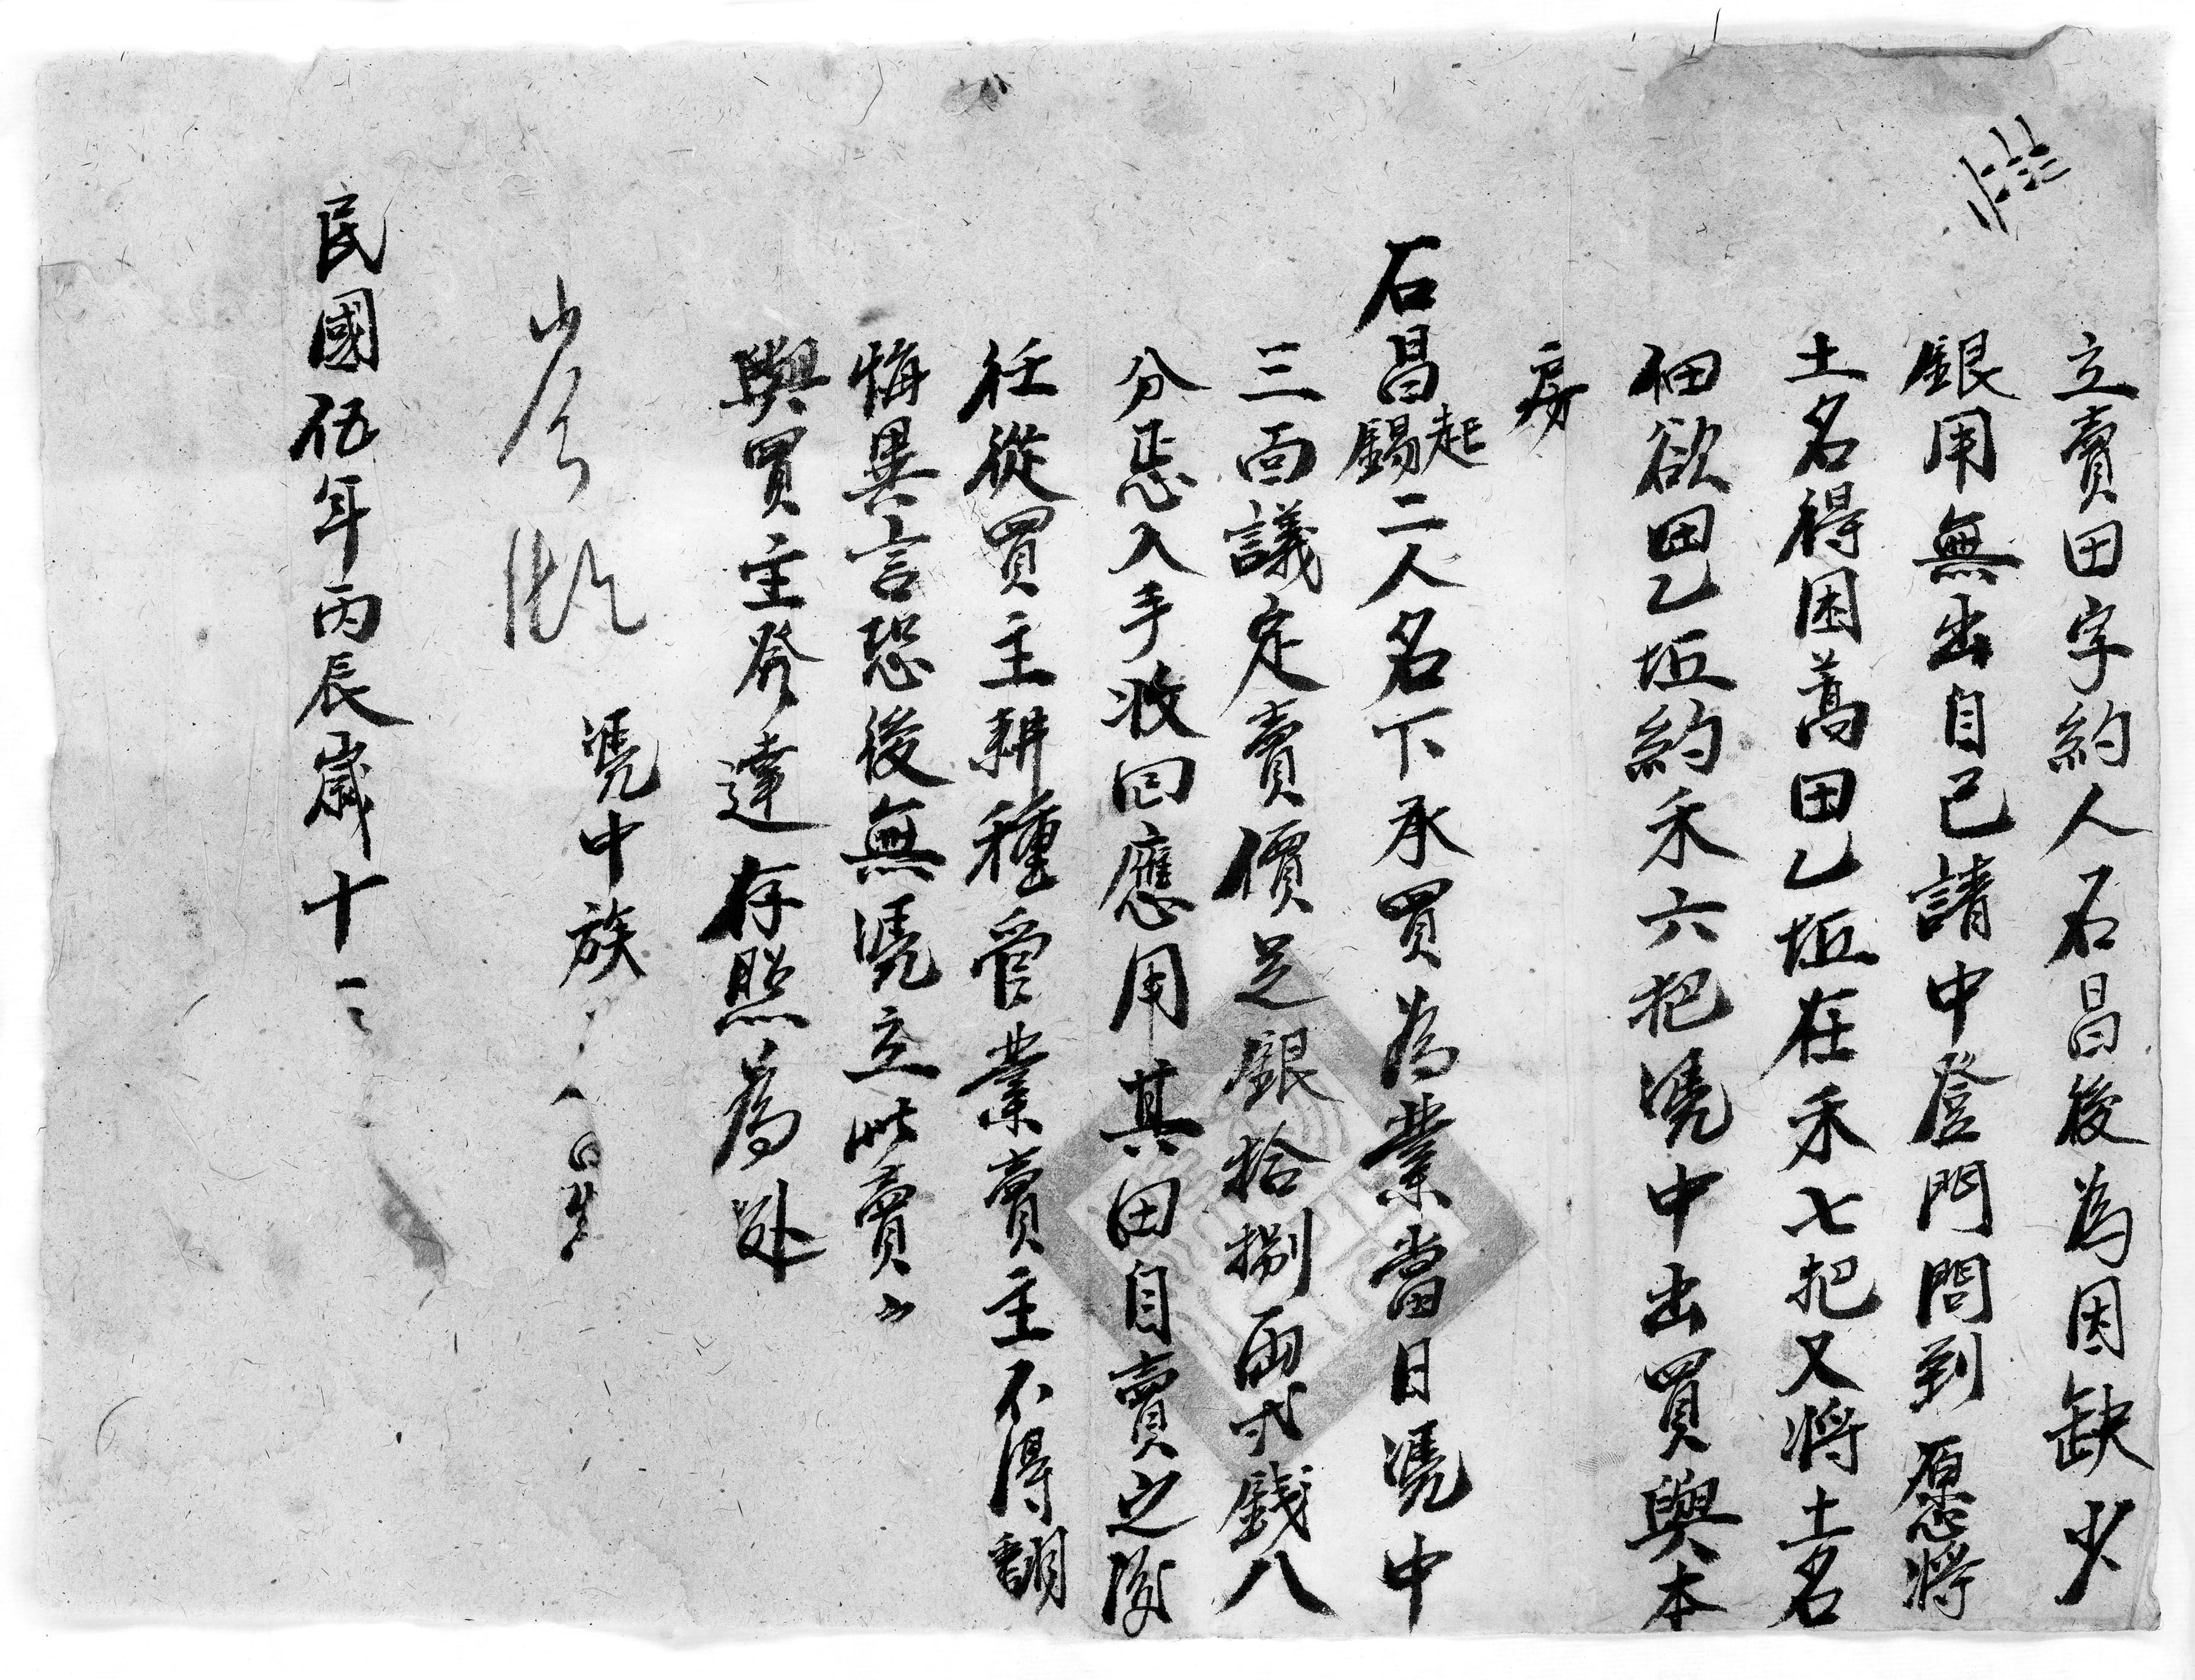 立賣田字約人石昌後為因缺少
銀用無出自己請中登門問到愿將
土名得困蒿田乙坵在禾七把又將土名
欲田乙坵約禾六把凴中出買與本
房
石昌錫起二人名下承買為業當日凴中
三面議定賣價足銀拾捌両弍錢八
分悉入手收回應用其田自賣之後
任從買主耕種管業賣主不得翻
悔異言恐後無凴立此賣
與買主發達存照為処
凴中族
民國伍年丙辰歲十